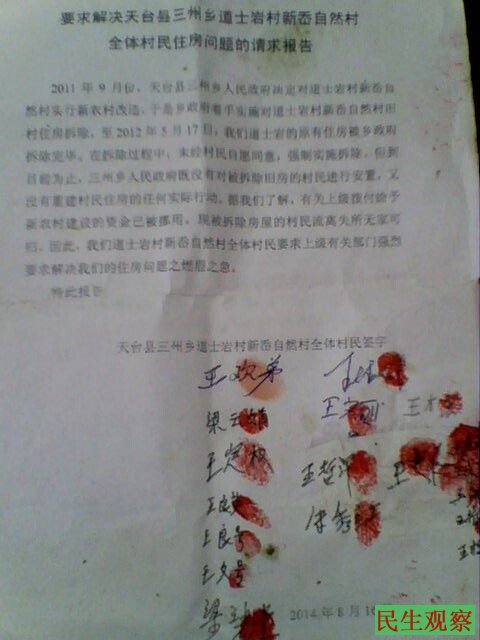 要求解决天台县三州乡道士岩村新岙自然村
全体村民住房问题的请求报告
2011年9月份，天台县三州乡人民政府决定对道士岩村新岙自
然村实行新农村改造，于是乡政府着手实施对道士岩村新岙自然村旧
村住房拆除，至2012年5月17日，我们道士岩的原有住房被乡政府
拆除完毕。在拆除过程中，未经村民自愿同意，强制实施拆除，但到
目前为止，三州乡人民政府既没有对被拆除旧房的村民进行安置，又
没有重建村民住房的任何实际行动。据我们了解，有关上级拨付给予
新农村建设的资金已被挪用，现被拆除房屋的村民流离失所无家可
归。因此，我们道士岩村新岙自然村全体村民要求上级有关部门强烈
要求解决我们的住房问题之燃眉之急。
特此报告
天台县三州乡道士岩村新岙自然村全体村民签字
王欢弟
梁云娟
王
王哲
王良
王良号
王文号
梁
2014年8月16
民生观察